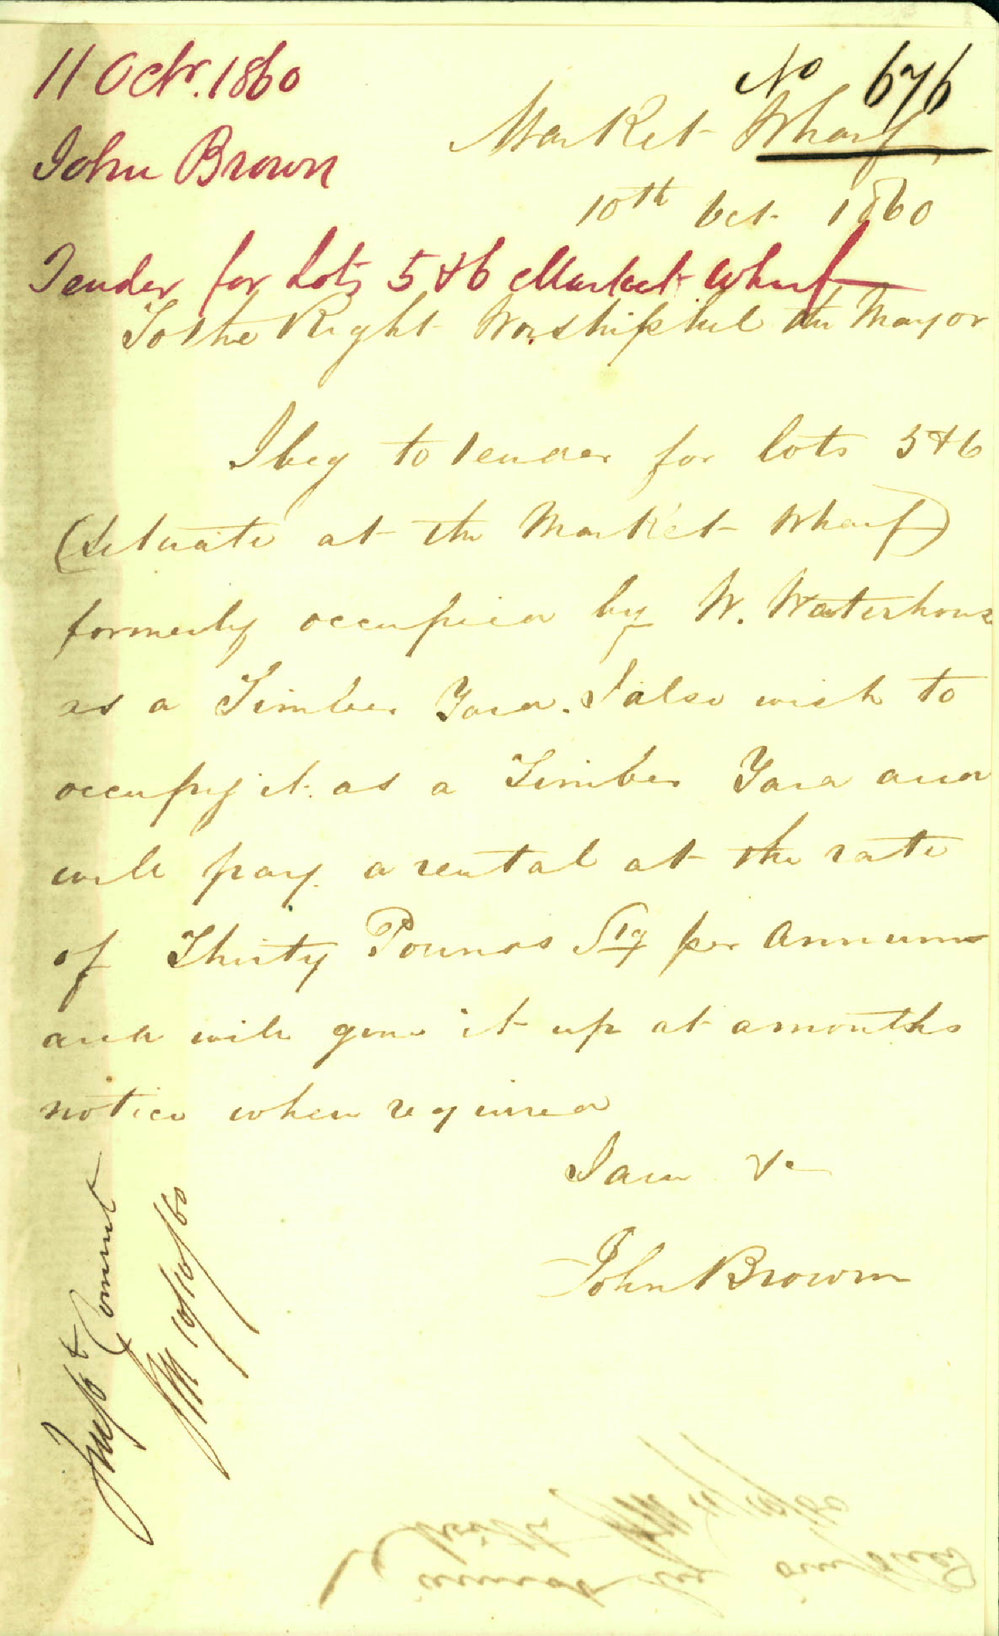 11 Octr. 1860
No 676
John Brown
Market Wharf
10th Oct 1860
Tender for Lots 5 & 6 Market Wharf
To the Right Worshipful the Mayor
I beg to tender for lots 5 & 6
(Situate at the Market Wharf)
formerly occupied by W. Waterhouse
as a Timber Yard. I also wish to
occupy it as a Timber Yard and
will pay a rental at the rate
of Thirty Pounds Stg per Annum
and will give it up at a months
notice when required
I am &c
John Brown
Impt Commt
10/10/60